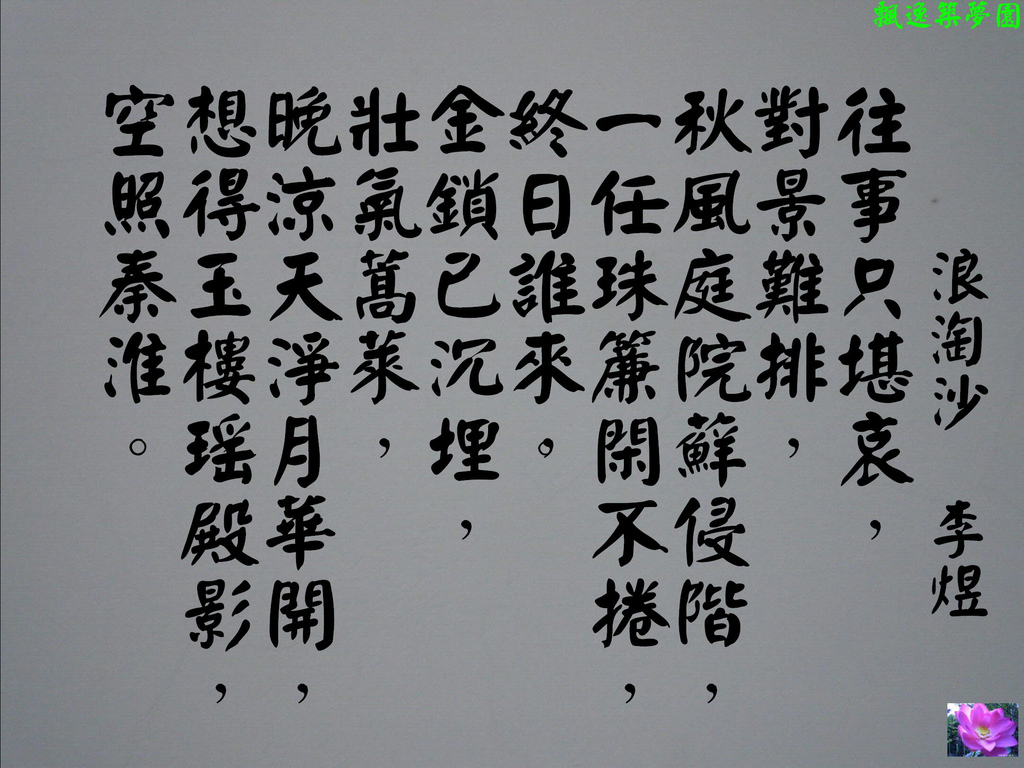 飄逸築夢園
浪淘沙 李煜
往事只堪哀，
對景難排，
秋風庭院蘚侵階，
一任珠簾閑不捲，
終日誰來。
金鎖已沉埋，
壯氣蒿萊，
晚涼天淨月華開，
想得玉樓瑶殿影，
空照秦淮。